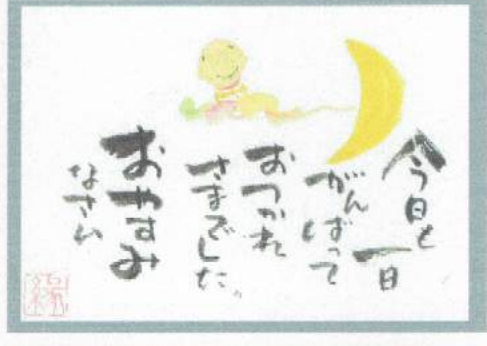 今日も一日
がんばって
おつかれ
さまでした。
おやすみ
なさい